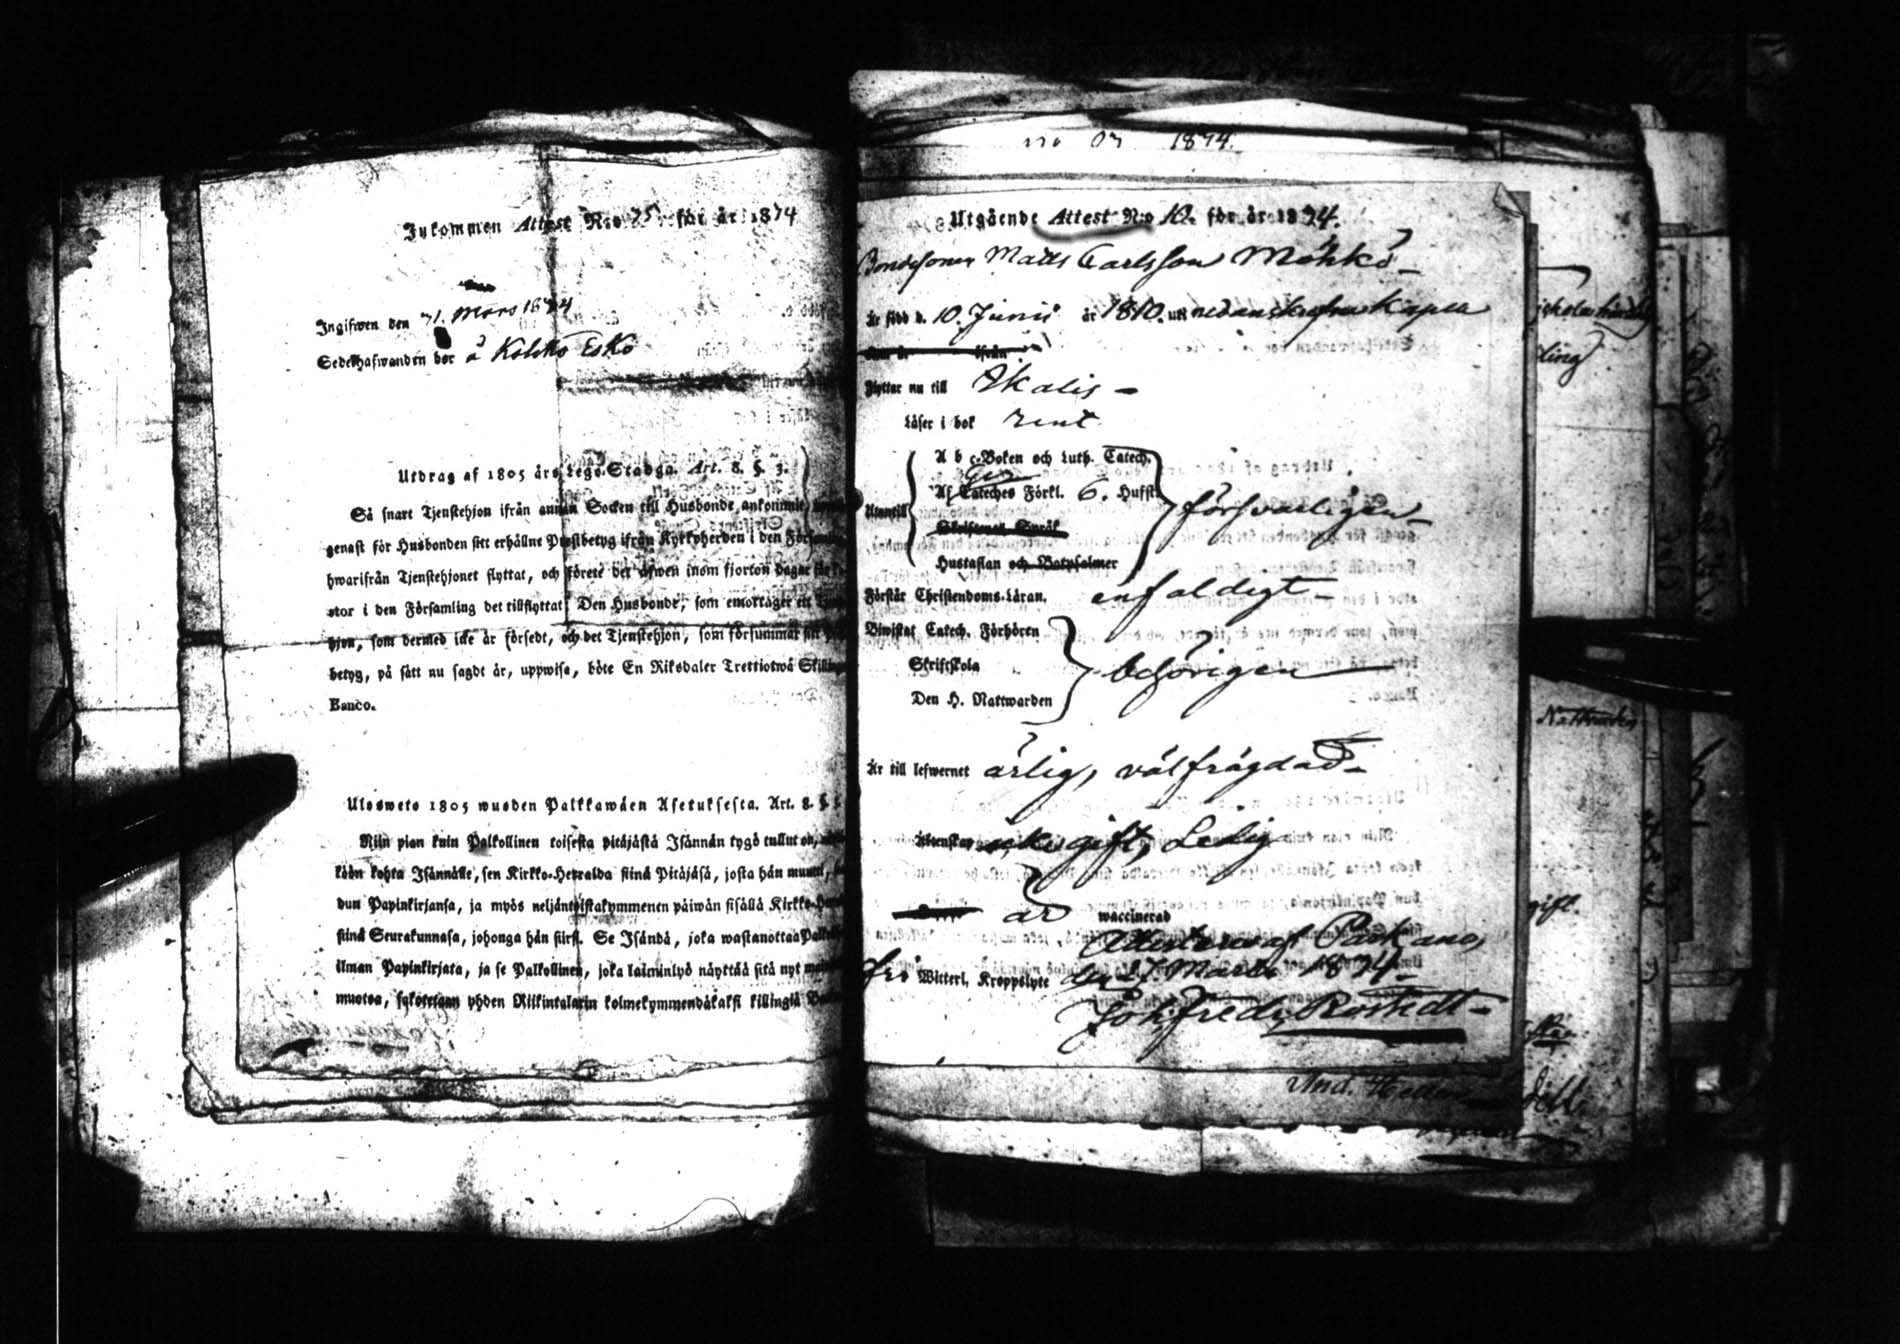 Inkommen Attest N:o 75 för år 1874
Ingifwen den 31. Mars 1874
Sedelhafwanden bor å Kohko Esko
Utdrag af 1805 års Lego-Stadga. Art. 8. §. 3.
Så snart Tjenstehjon ifrån annan Socken till Husbonde ankommit,
genast för Husbonden sitt erhållne Prestbetyg ifrån Kyrkoherden i den
hwarifrån Tjenstehjonet flyttat, och förete det äfwen inom fjorton dagar
stor i den Församling det tillflyttat. Den Husbonde, som emottager ett
hjon, som dermed icke är försedt, och det Tjenstehjon, som försummar
betyg, på sätt nu sagdt är, uppwisa, böte En Riksdaler Trettiotwå
Banco.
Ulosweto 1805 wuoden Palkkawäen Asetuksesta. Art. 8. §
Niin pian kuin Palkollinen toisesta pitäjästä Isännän tygö tullut on,
köön kohta Isännälle, sen Kirkko-Herralda siinä Pitäjäsä, josta hän
dun Papinkirjansa, ja myös neljäntoistakymmenen päiwän sisällä
siinä Seurakunnasa, johonga hän siirsi. Se Isändä, joka wastanottaa
ilman Papinkirjata, ja se Palkollinen, joka laiminlyö näyttää sitä nyt
muotoa, yhden Riikintalarin kolmekymmendäkaksi killingiä
1874.
Utgående Attest N:o 12. för år 1874.
Bondesonen Matts Carlsson Möhkö
är född d. 10. Junii år 1810. uti nedanskrefne Kapell
Flyttar nu till Ikalis
Läser i bok rent
A b c-Boken och Luth. Catech.
Af Cateches Förkl. 6. Hufst.
Utantill
försvarligen
Skriftenes Språk
Hustaflan och Botpsalmer
Förstår Christendoms-Läran. enfaldigt
Biwistat Catech. Förhören
Skriftskola
behörigen
Den H. Nattwarden
Är till lefwernet ärlig, välfrägdad
Äktenskap icke gift, Ledig
är waccinerad
Attesterar af Parkano,
fri Witterl. Kroppslyte den 27 Mars 1874
Joh. Fredr. Rostedt
And.
Nattvarden
gift.